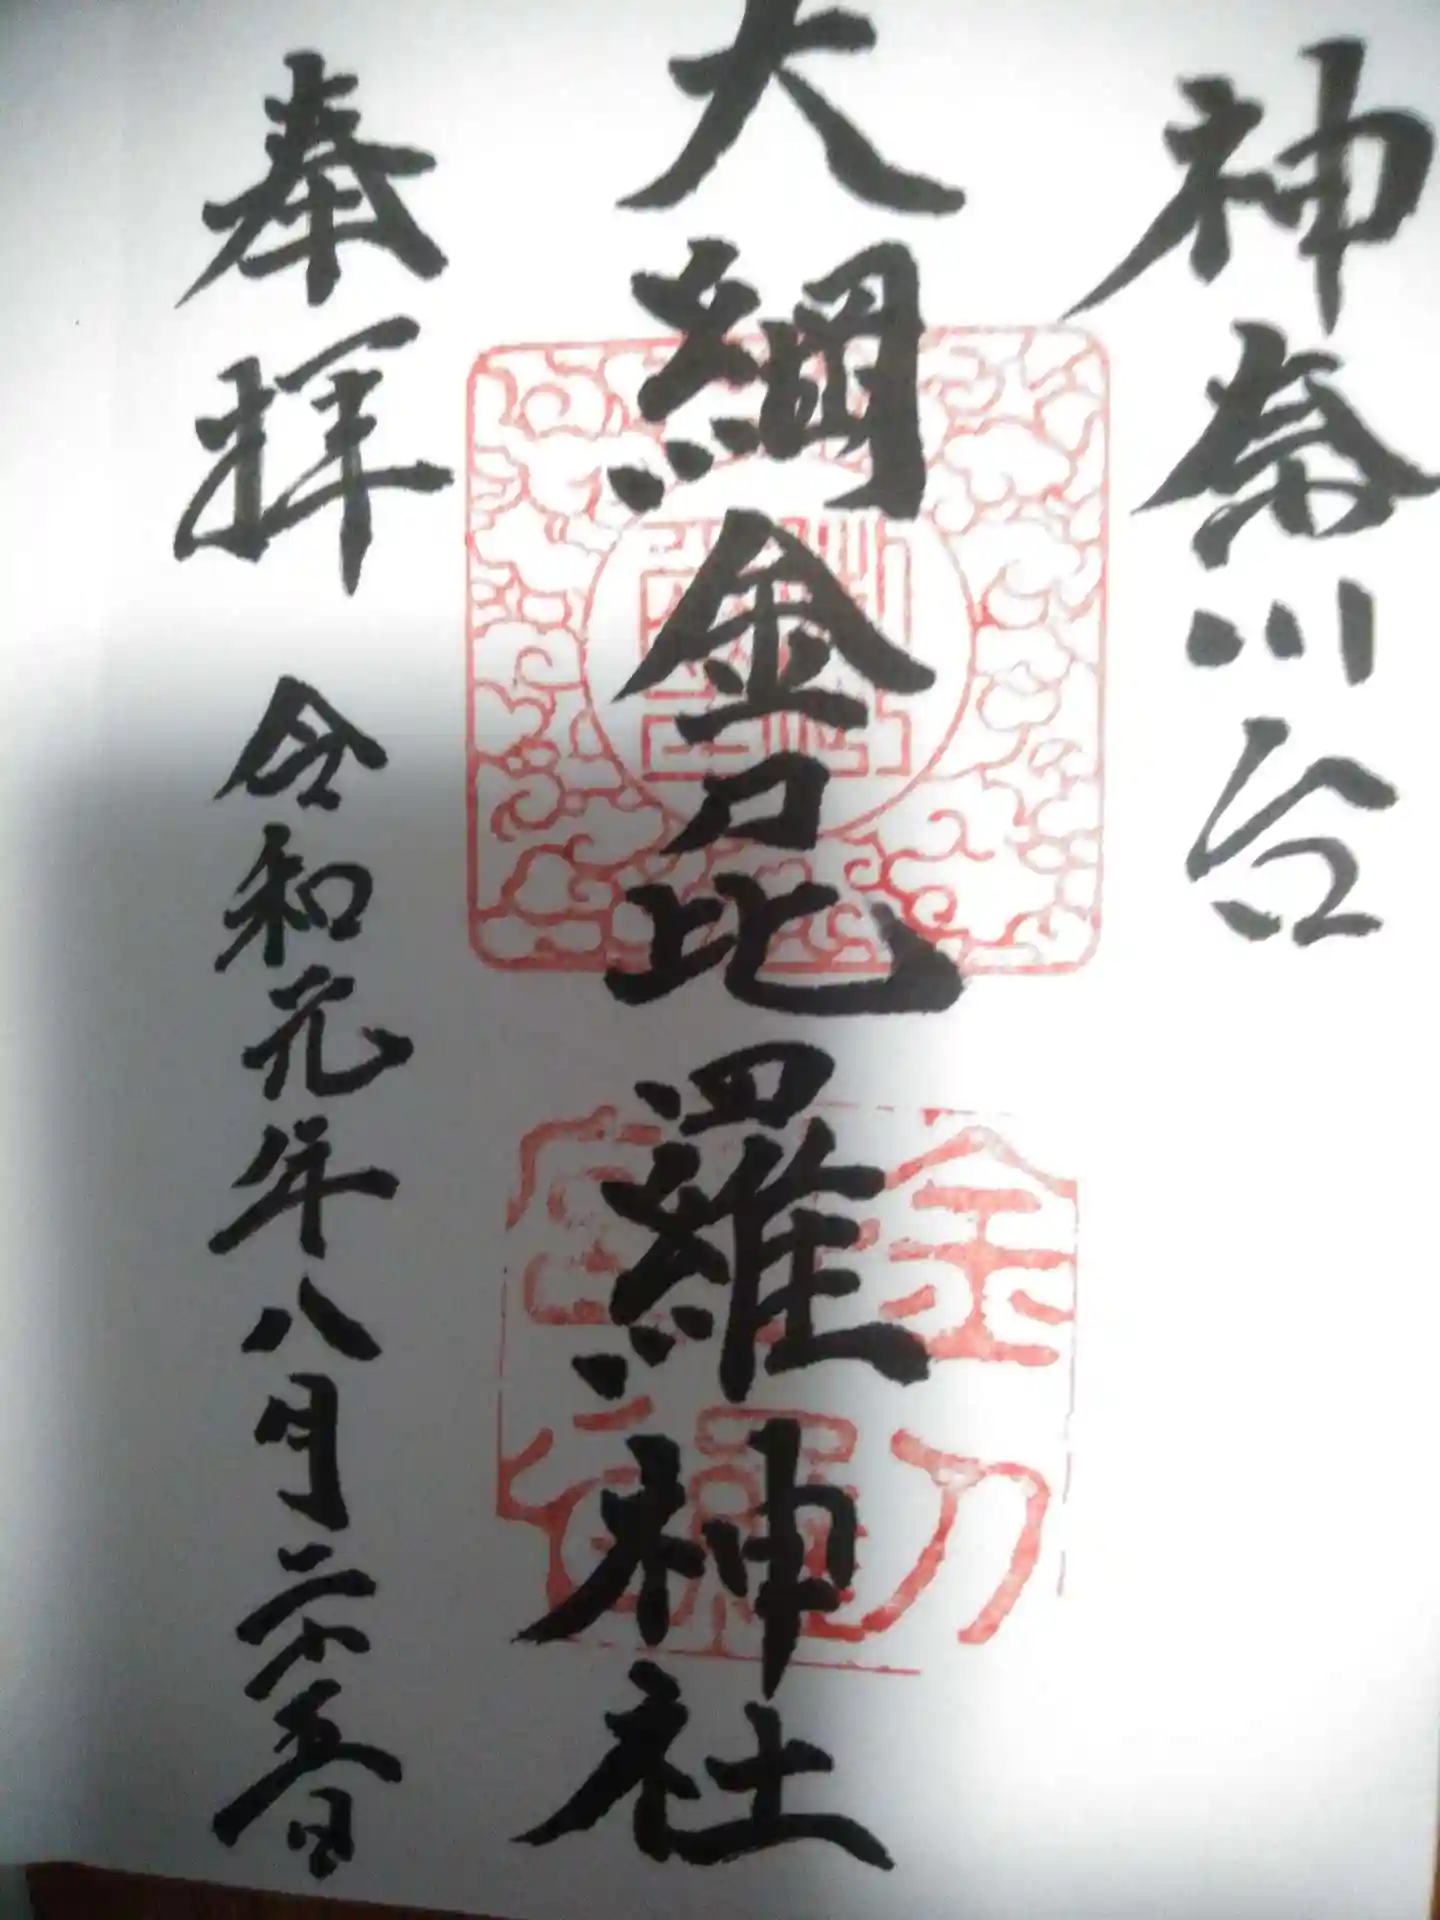 神奈川台
大綱金刀比羅神社
奉拝
令和元年八月二十五日